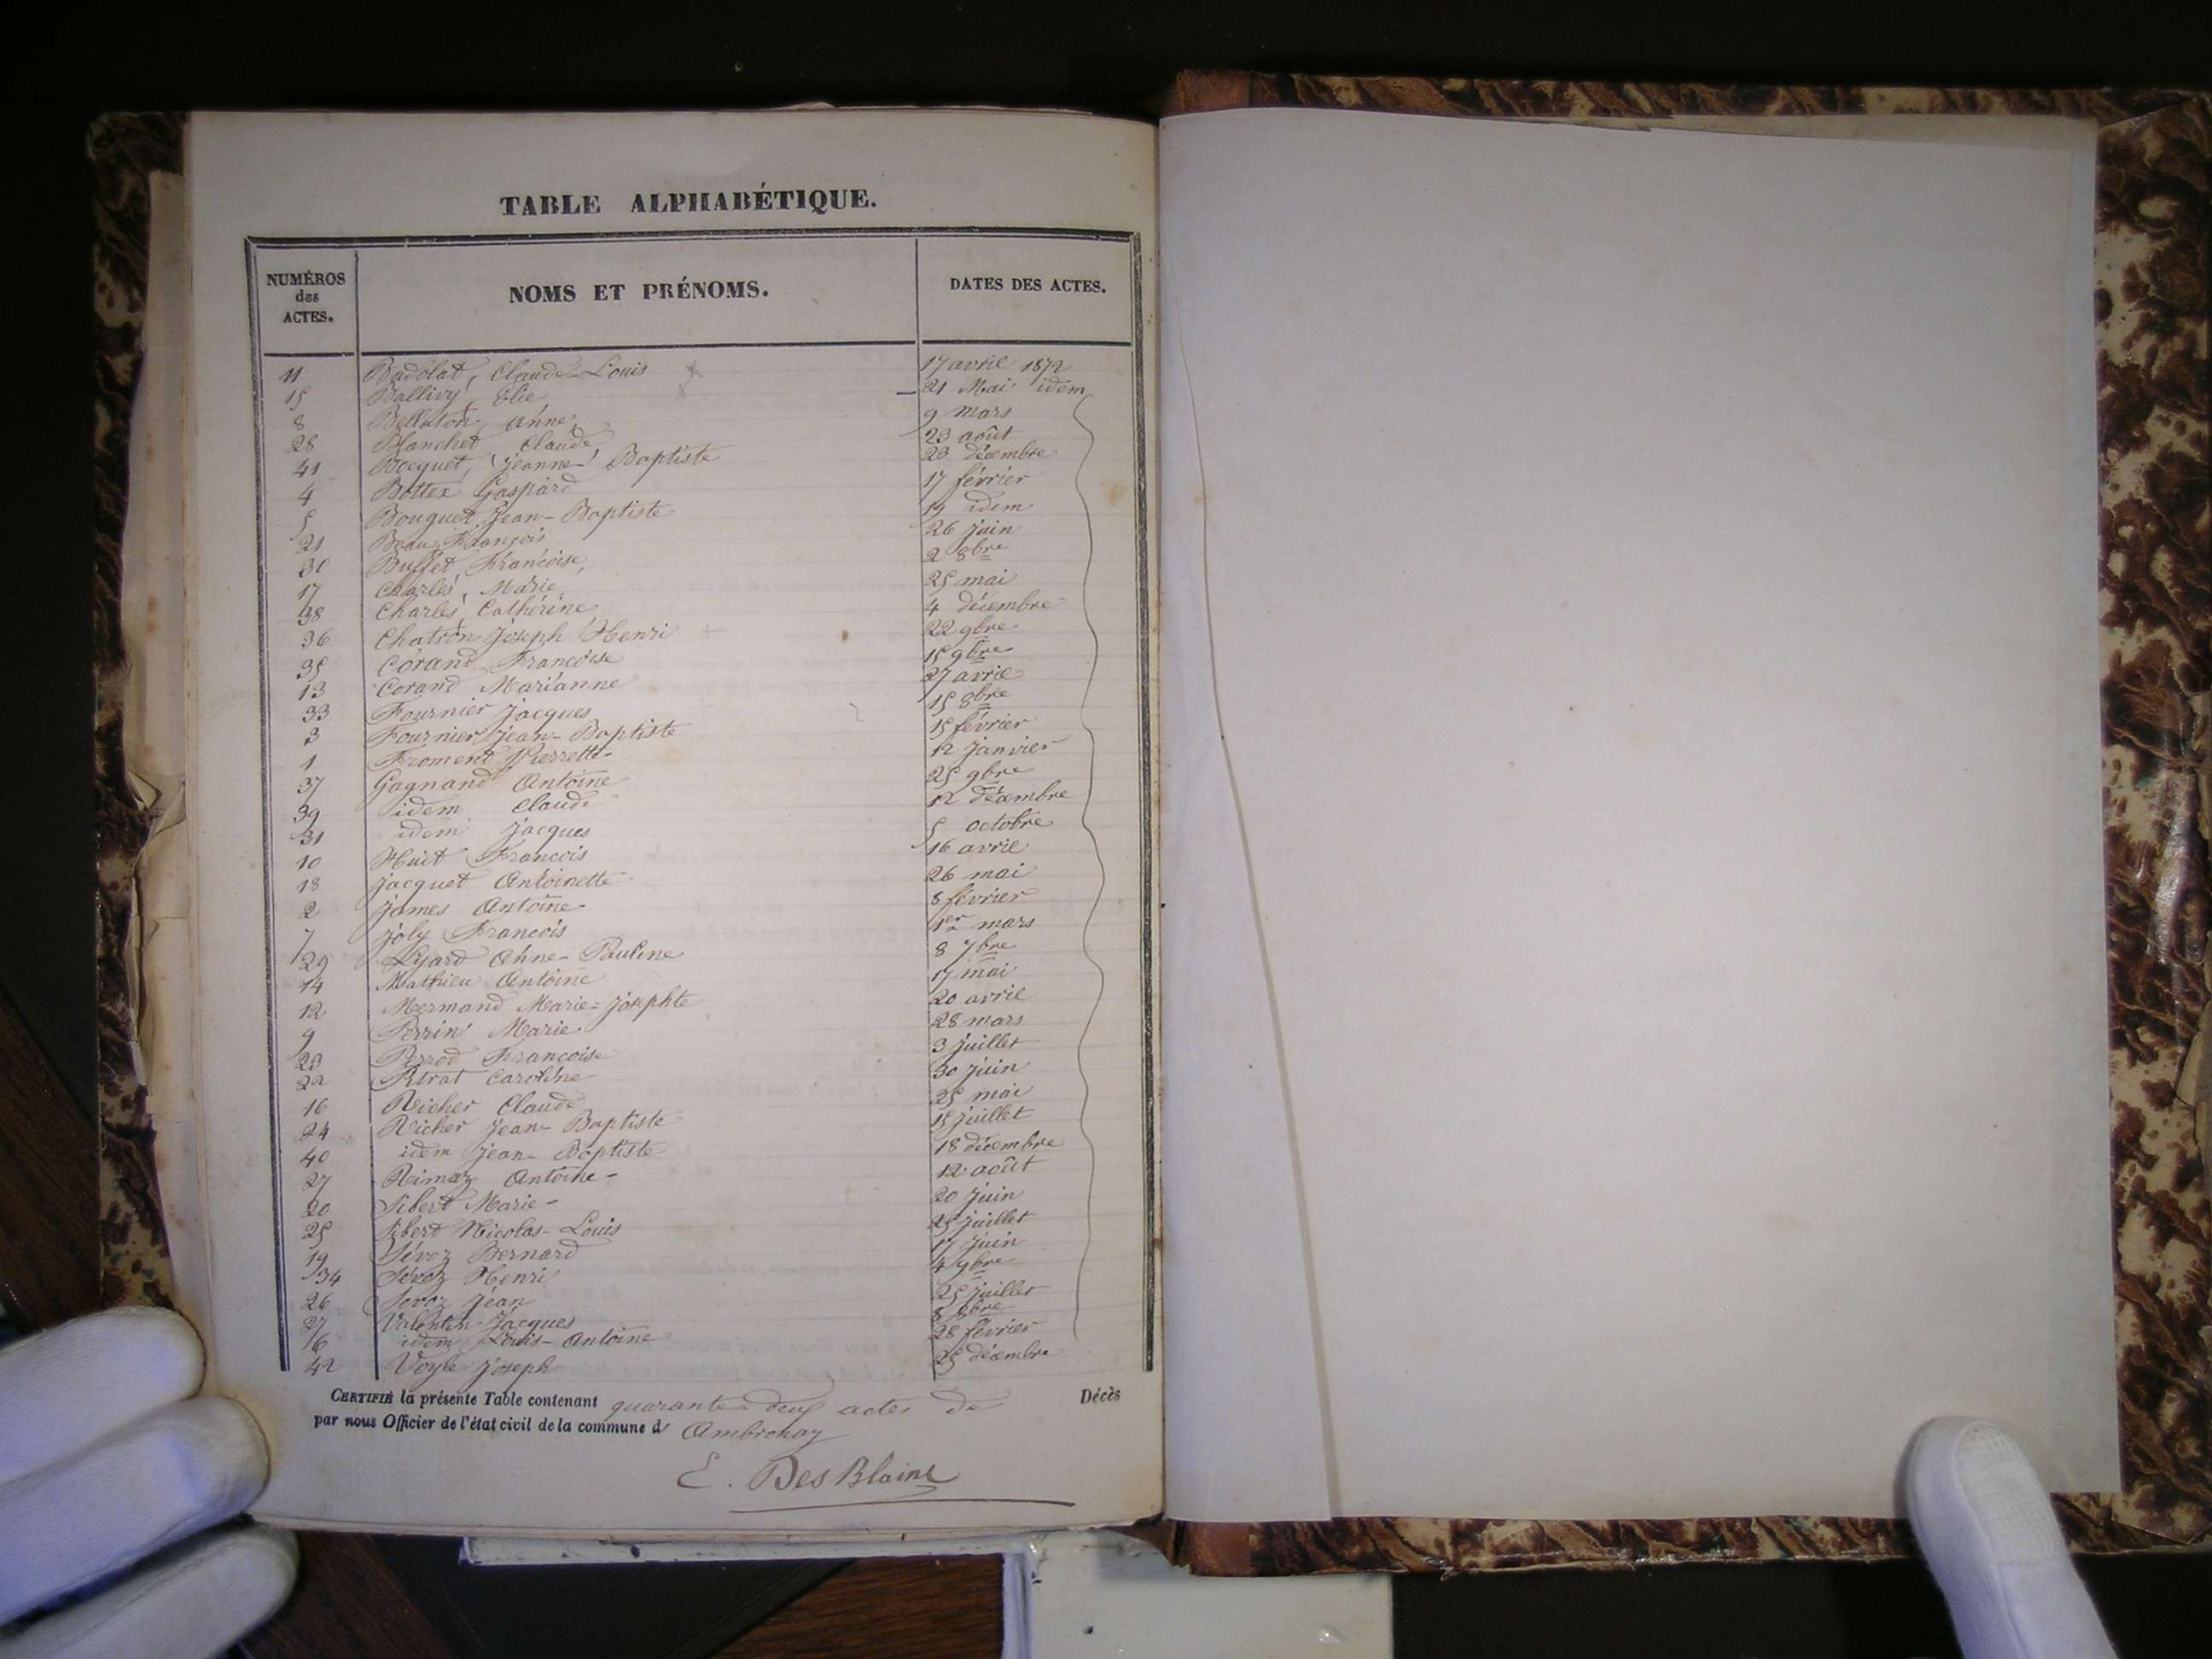 TABLE ALPHABÉTIQUE.
NUMÉROS des ACTES. NOMS ET PRÉNOMS. DATES DES ACTES.
11 Badolat, Claude-Louis 17 avril 1872
15 Ballivy, Elie 21 Mai idem
8 Bellaton, Anne 9 mars
28 Blanchet Claude 23 août
41 Bocquet, Jeanne-Baptiste 23 décembre
4 Bottex Gaspard 17 février
5 Bouquet Jean-Baptiste 19 idem
21 François 26 juin
30 Buffet Françoise 2 8bre
17 Charles, Marie 25 mai
38 Charles, Cathérine 4 décembre
36 Chatron Joseph Henri 22 9bre
35 Corand Françoise 15 9bre
13 Corand Marianne 27 avril
33 Fournier Jacques 15 8bre
3 Fournier Jean-Baptiste 15 février
1 Froment Pierrette 12 janvier
37 Gagnand Antoine 25 9bre
39 idem Claude 12 décembre
31 idem Jacques 5 octobre
10 Huit François 16 avril
18 Jacquet Antoinette 26 mai
2 James Antoine 8 février
7 Joly François 1er mars
29 Lyard Anne-Pauline 8 7bre
14 Mathieu Antoine 17 mai
12 Mermand Marie-Josephte 20 avril
9 Perrin Marie 28 mars
23 Perrod Françoise 3 juillet
22 Caroline 30 juin
16 Richer Claude 25 mai
24 Richer Jean Baptiste 15 juillet
40 idem Jean-Baptiste 18 décembre
27 Rimaz Antoine 12 août
20 Sibert Marie 20 juin
25 Sibert Nicolas-Louis 25 juillet
19 Sévoz Bernard 17 juin
34 Sévoz Henri 4 9bre
26 Sevoz Jean 25 juillet
Valentin Jacques 8 8bre
6 idem Louis-Antoine 28 février
42 Voyle Joseph 25 décembre
CERTIFIÉ la présente Table contenant quarante-deux actes de Décès
par nous Officier de l'état civil de la commune d Ambronay
E. DesBlains